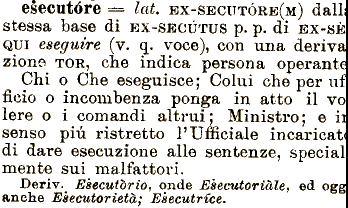 eṡecutóre = lat. EX-SECUTÓRE(M) dall
stessa base di EX-SECÚTUS p. p. di EX-SÈ
QUI eseguire (v. q. voce), con una deriva
zione TOR, che indica persona operante
Chi o Che eseguisce; Colui che per uf
ficio o incombenza ponga in atto il vo
lere o i comandi altrui; Ministro; e i
senso piú ristretto l'Ufficiale incaricat
di dare esecuzione alle sentenze, special
mente sui malfattori.
Deriv. Eṡecutòrio, onde Eṡecutoriàle, ed ogg
anche Eṡecutorietà; Eṡecutríce.